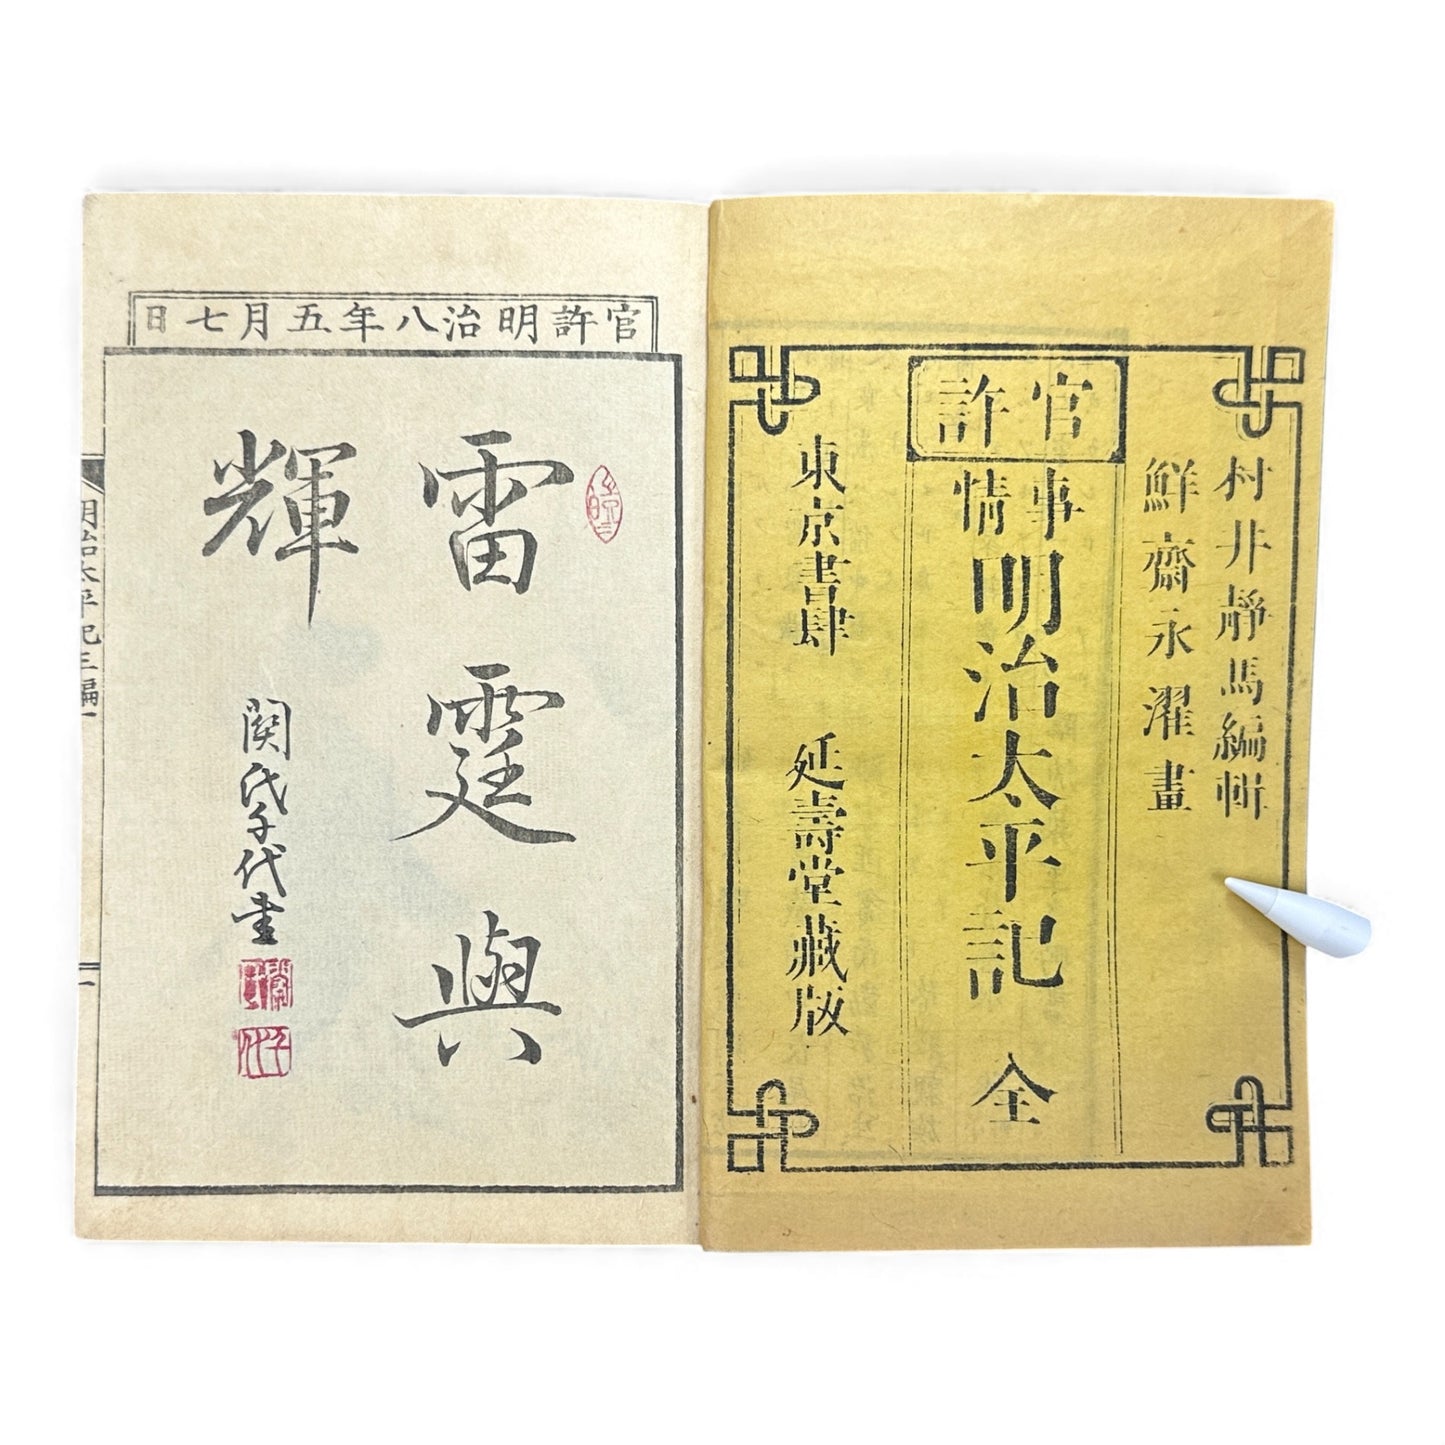 村井靜馬編輯
鮮齋永濯畫
官許
事情
明治太平記 全
東京書肆 延壽堂藏版
官許明治八年五月七日
雷霆與
輝
関氏千代書
明治太平記三編一